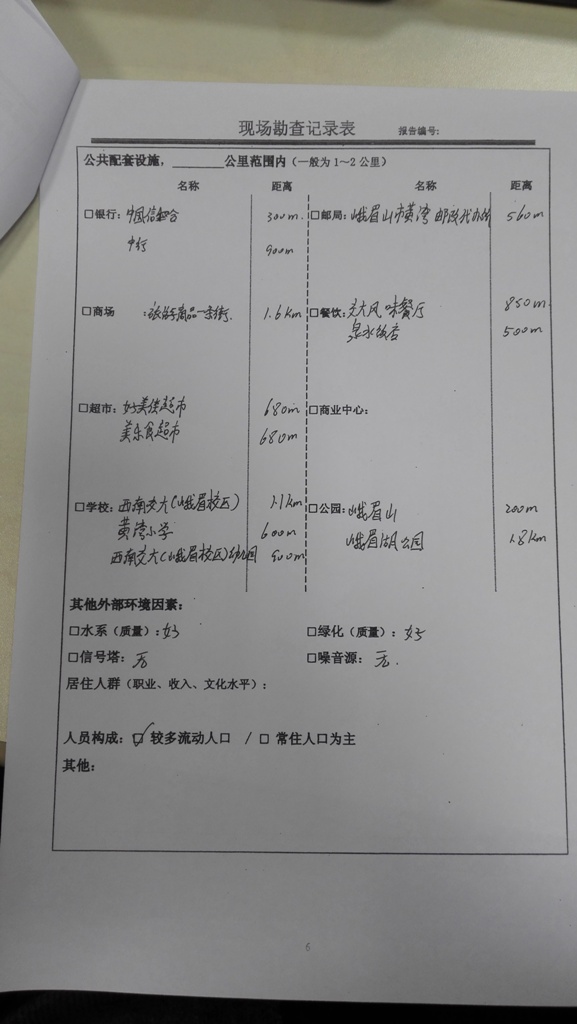 现场勘查记录表 报告编号:
公共配套设施，________公里范围内（一般为1～2公里）
名称 距离 名称 距离
□银行: 300m. □邮局: 峨眉山市黄湾邮政代办所 560m
中行 900m
□商场 : 旅游商品一条街. 1.6km □餐饮: 交大风味餐厅 850m.
泉水饭店 500m
□超市: 好美佳超市 680m □商业中心:
美乐食超市 680m
□学校: 西南交大(峨眉校区) 1.1km □公园: 峨眉山 200m
黄湾小学 600m 峨眉湖公园 1.8km
西南交大(峨眉校区)幼儿园 900m
其他外部环境因素:
□水系（质量）: 好 □绿化（质量）: 好
□信号塔: 无 □噪音源: 无.
居住人群（职业、收入、文化水平）:
人员构成: ☑ 较多流动人口 / □ 常住人口为主
其他:
6